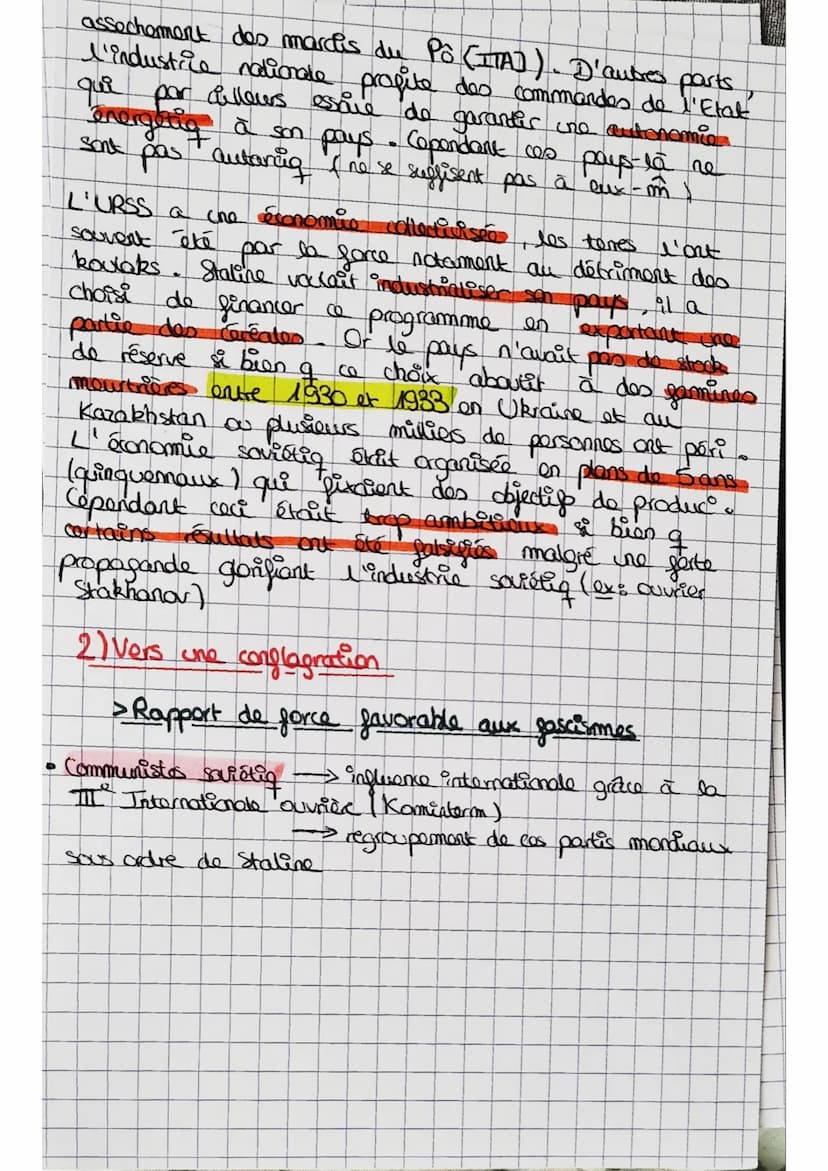 assechement des marais du Pô (ITA). D'autres parts,
l'industrie nationale profite des commandes de l'Etat
qui par ailleurs essaie de garantir une autonomie
énergétiq à son pays. Cependant ces pays-là ne
sont pas autarciq (ne se suffisent pas à eux-m̂)
L'URSS a une économie collectivisée, les terres l'ont
souvent été par la force notament au détriment des
koulaks. Staline voulait industrialiser son pays, il a
choisi de financer ce programme en exportant une
partie des céréales. Or le pays n'avait pas de stock
de réserve si bien q ce choix aboutit à des famines
meurtrières entre 1930 et 1933 en Ukraine et au
Kazakhstan où plusieurs milliers de personnes ont péri.
L'économie soviétiq était organisée en plans de 5 ans
(quinquennaux) qui fixaient des objectifs de produc°.
Cependant ceci était trop ambitieux si bien q
certains résultats ont été falsifiés malgré une forte
propagande glorifiant l'industrie soviétiq (ex: ouvrier
Stakhanov)
2) Vers une conflagration
> Rapport de force favorable aux fascismes
• Communistes soviétiq → influence internationale grâce à la
IIIe Internationale ouvrière (Kominterm)
→ regroupement de ces partis mondiaux
sous ordre de Staline